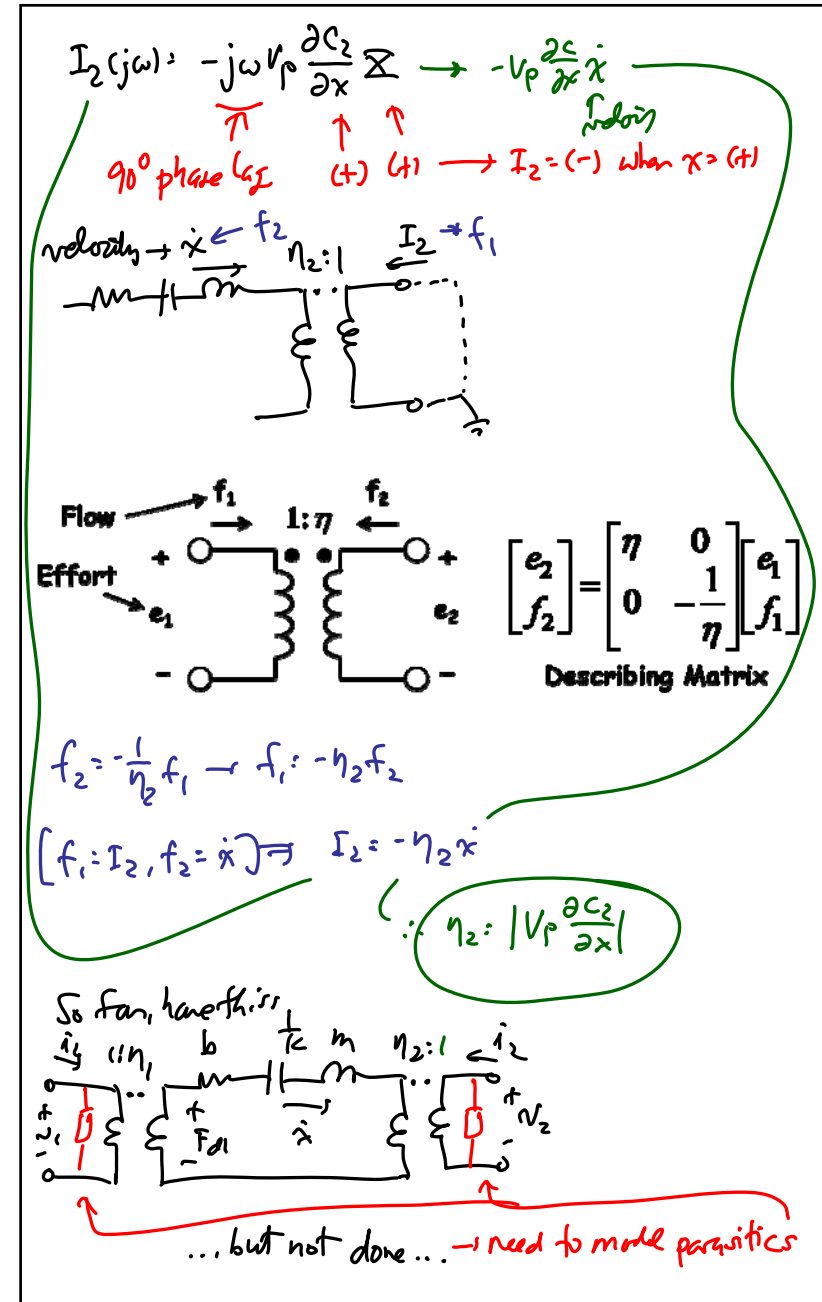 I₂(jω) = -jω Vₚ ∂C₂/∂x X → -Vₚ ∂C/∂x ẋ
90° phase lag (+) (+) → I₂ = (-) when x = (+)
velocity → ẋ ← f₂ η₂:1 I₂ → f₁
f₁ f₂
Flow 1:η
+ +
Effort
e₁ e₂
- -
[e₂ f₂] = [η 0 0 -1/η] [e₁ f₁]
Describing Matrix
f₂ = -1/η₂ f₁ → f₁ = -η₂f₂
[f₁ = I₂, f₂ = ẋ] ⇒ I₂ = -η₂ẋ
∴ η₂ = |Vₚ ∂C₂/∂x|
So far, have this:
i₁ 1:η₁ b 1/k m η₂:1 i₂
+ v₁ - + Fd1 - ẋ + v₂ -
...but not done... → need to model parasitics